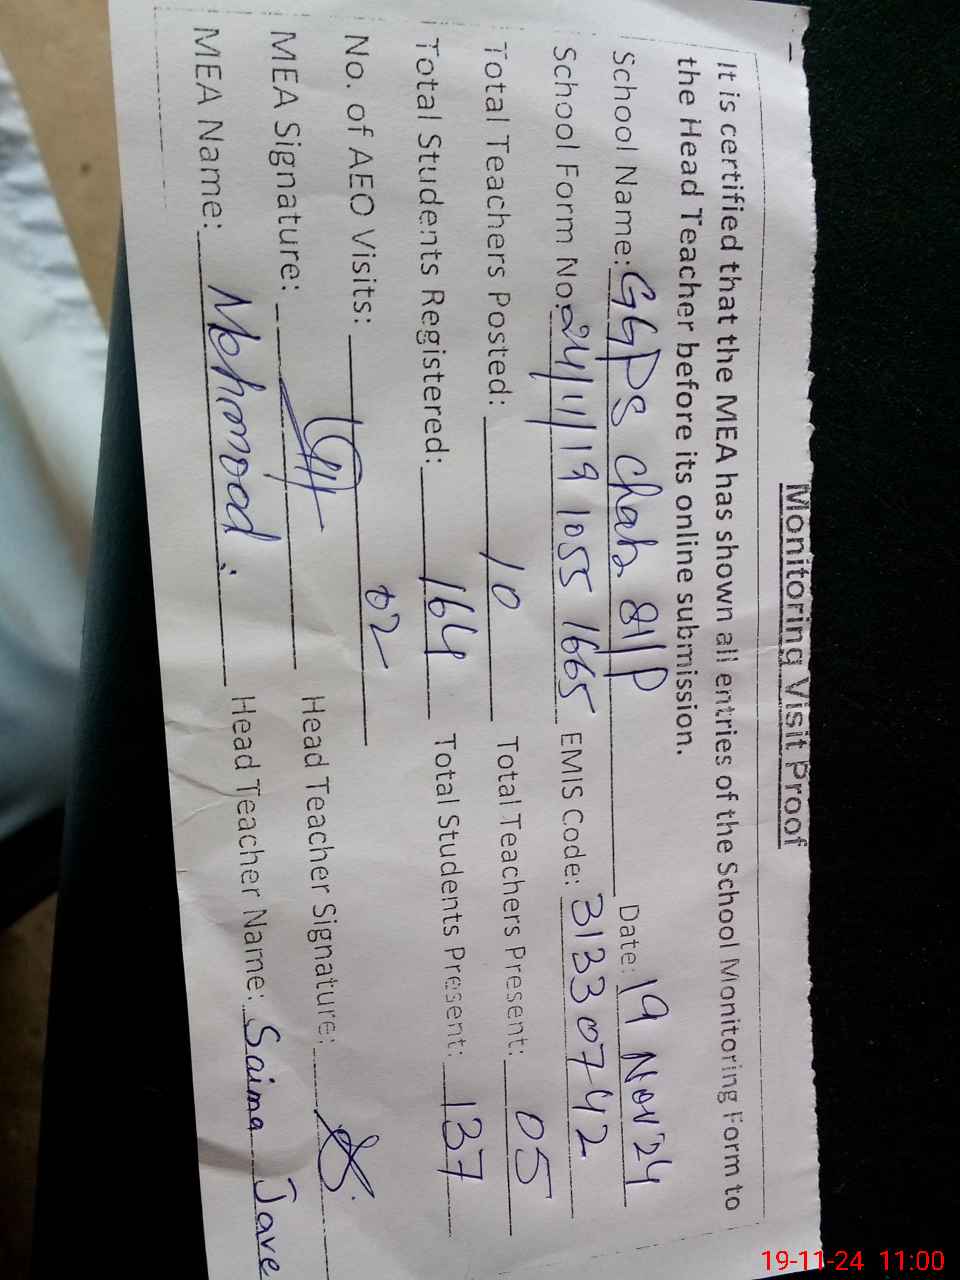 Monitoring Visit Proof
It is certified that the MEA has shown all entries of the School Monitoring Form to
the Head Teacher before its online submission.
School Name: GGPS chak 81/P Date: 19 Nov'24
School Form No: 24/11/19 1055 1665 EMIS Code: 31330742
Total Teachers Posted: 10 Total Teachers Present: 05
Total Students Registered: 164 Total Students Present: 137
No. of AEO Visits: 02
MEA Signature: Head Teacher Signature:
MEA Name: Mehmood Head Teacher Name: Saima Jave
19-11-24 11:00